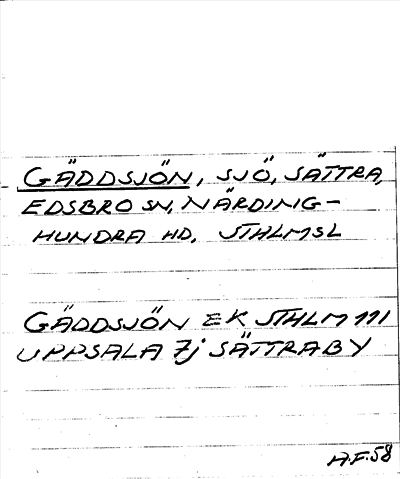 GÄDDSJÖN, SJÖ, SÄTTRA,
EDSBRO SN, NÄRDING-
HUNDRA HD, STHLMSL
GÄDDSJÖN EK STHLM 111
UPPSALA 7j SÄTTRABY
H.F. 58